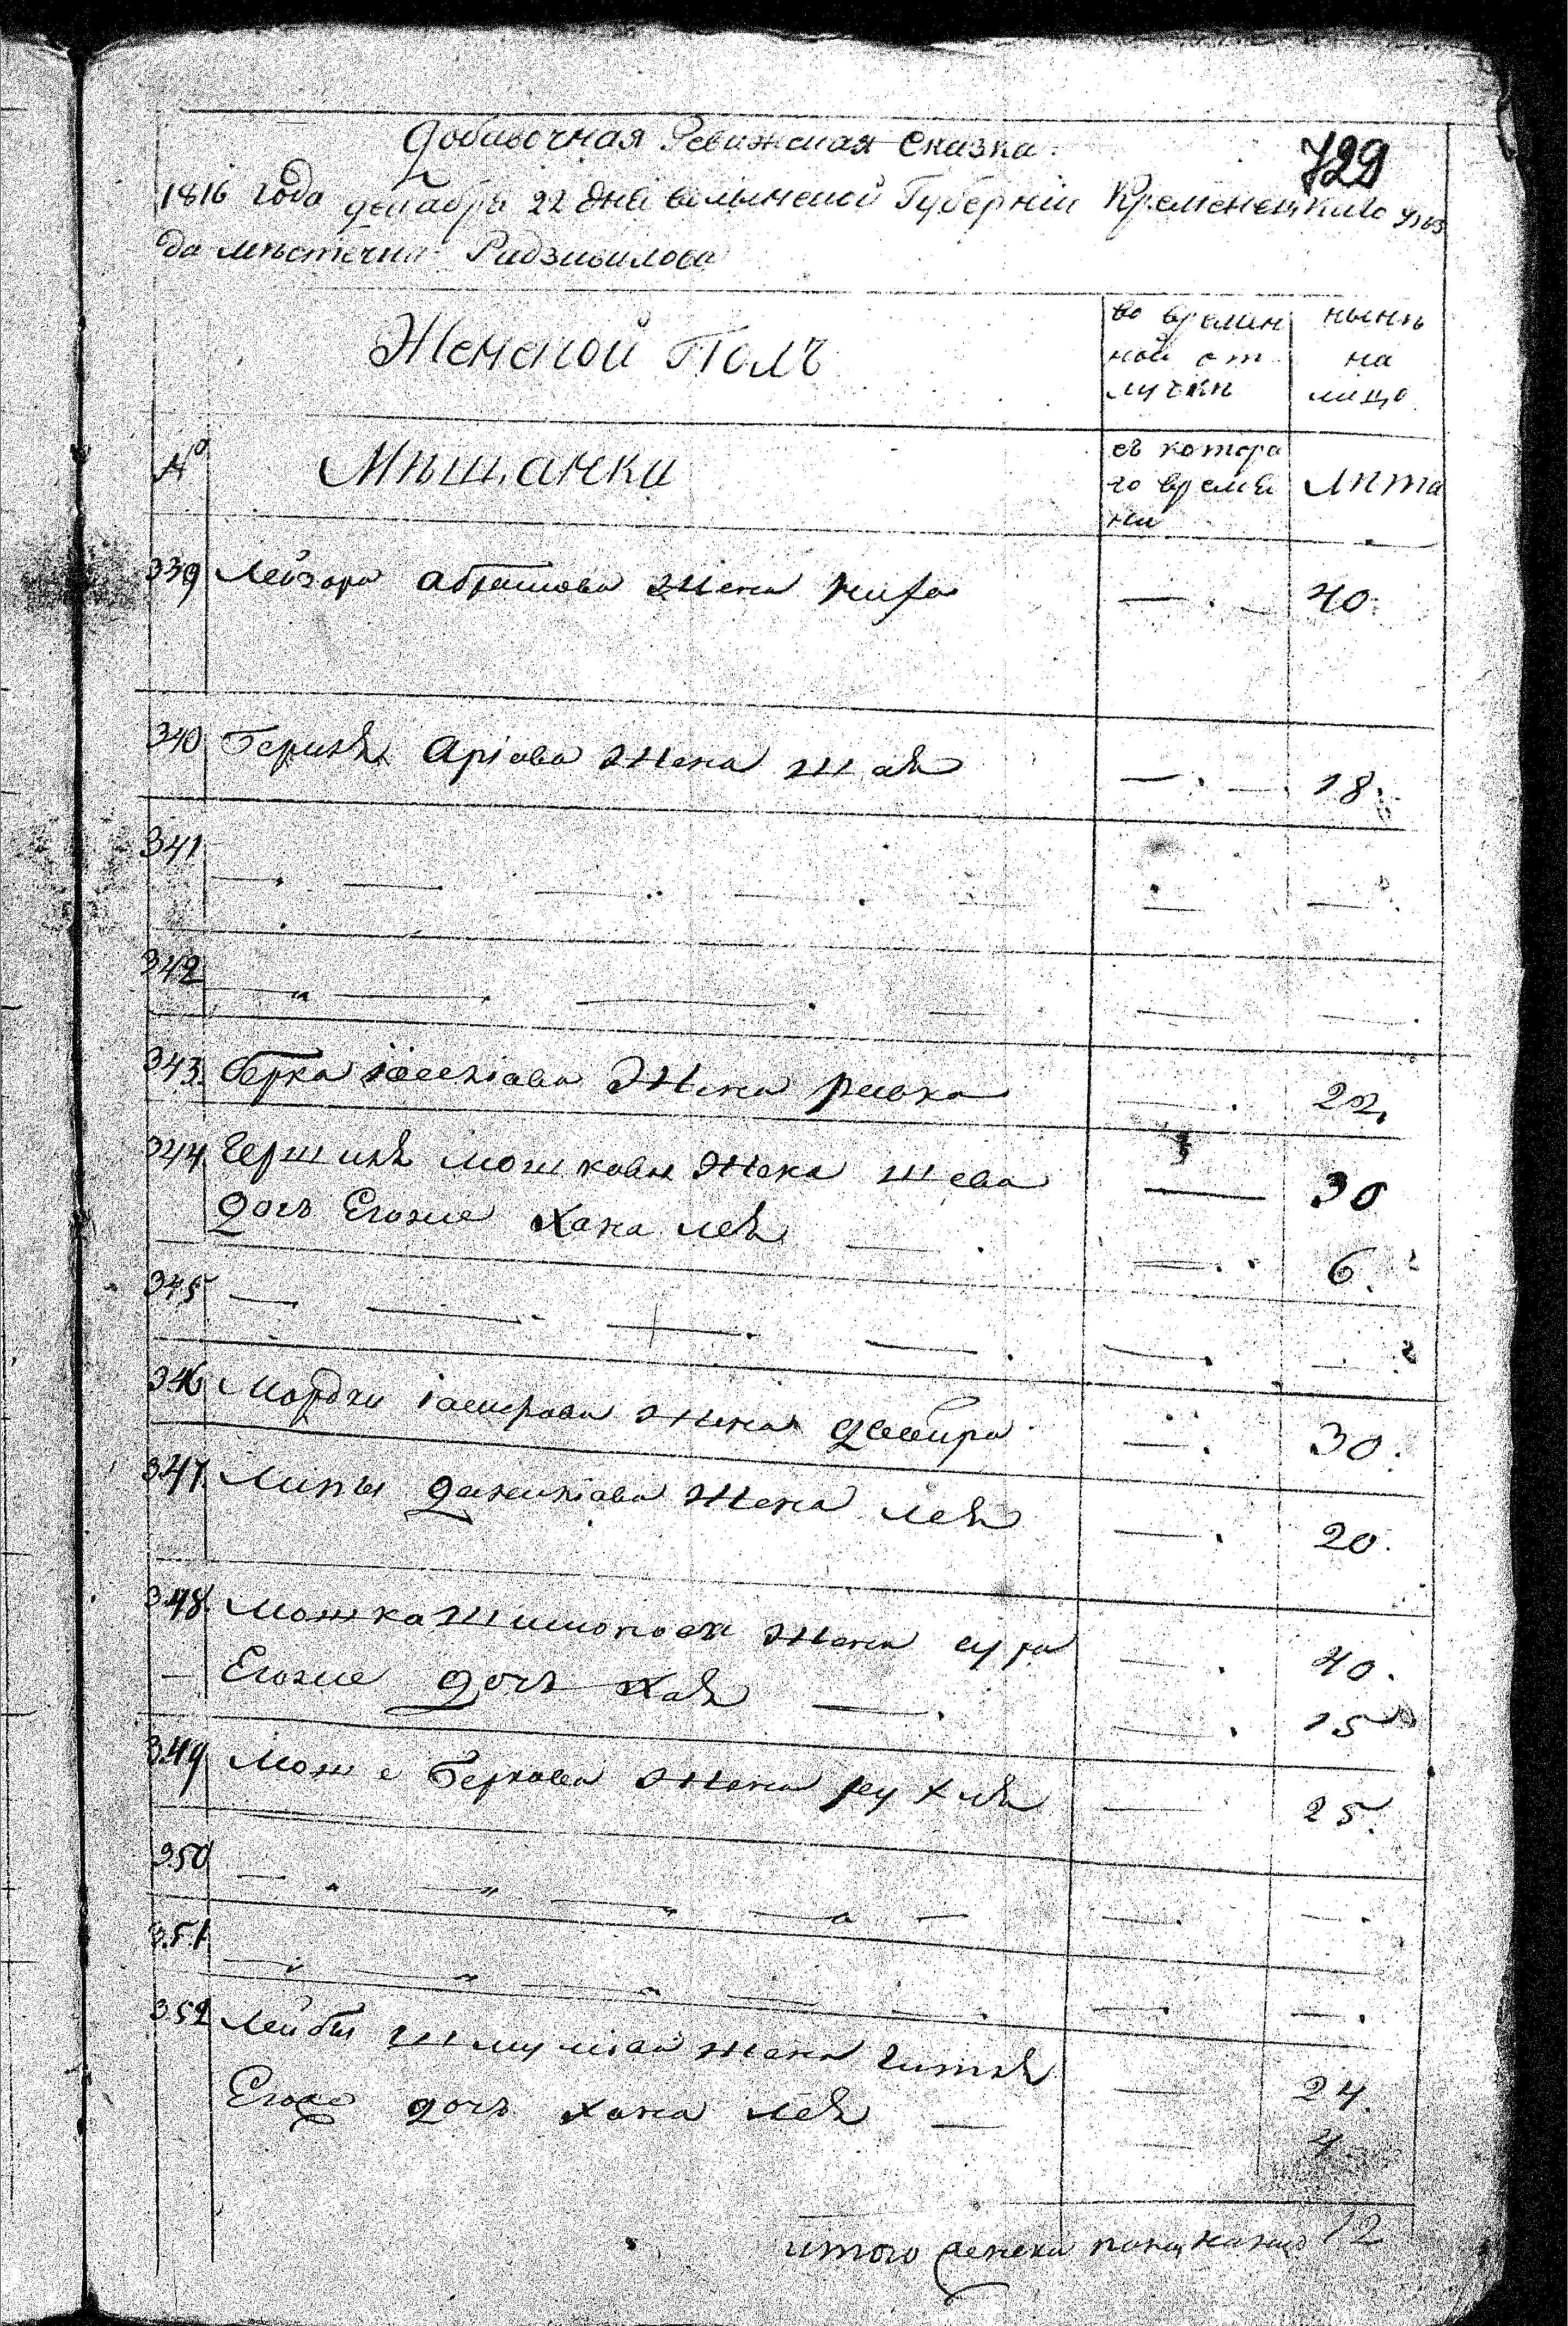 Добавочная Ревижская Сказка
729
1816 года декабря 22 дня волынской Губерніи Кременецкаго уѣз
да мѣстечка Радзивилова
Женской Полъ
во времен
ной от
лучки
нынѣ
на
лицо
№
Мѣщанки
съ котора
го време
ни
Лѣта
339 Лейзора абрамова жена — . — 40.
340 Аріова жена Шая — . — 18.
341 — — — — —
342 — — — —
343 Берка жена ривка — . 22.
344 Гершка мошковы жена шева — 30
дочь Егоже Хана лея — . 6.
345 — — — — — —
346 Мордки жена двойра — . 30.
347 Липы жена лея — . 20.
348 Мошка Шимонова жена сура — . 40.
— Егоже дочь Хая — . 15
349 Мошка Беркова жена рухля — 25.
350 — — — — — — —
351 — — — — — — —
352 Лейбы шмулева жена Гитля — 24.
Егоже дочь хана лея — 4.
итого женска полу налицо 12